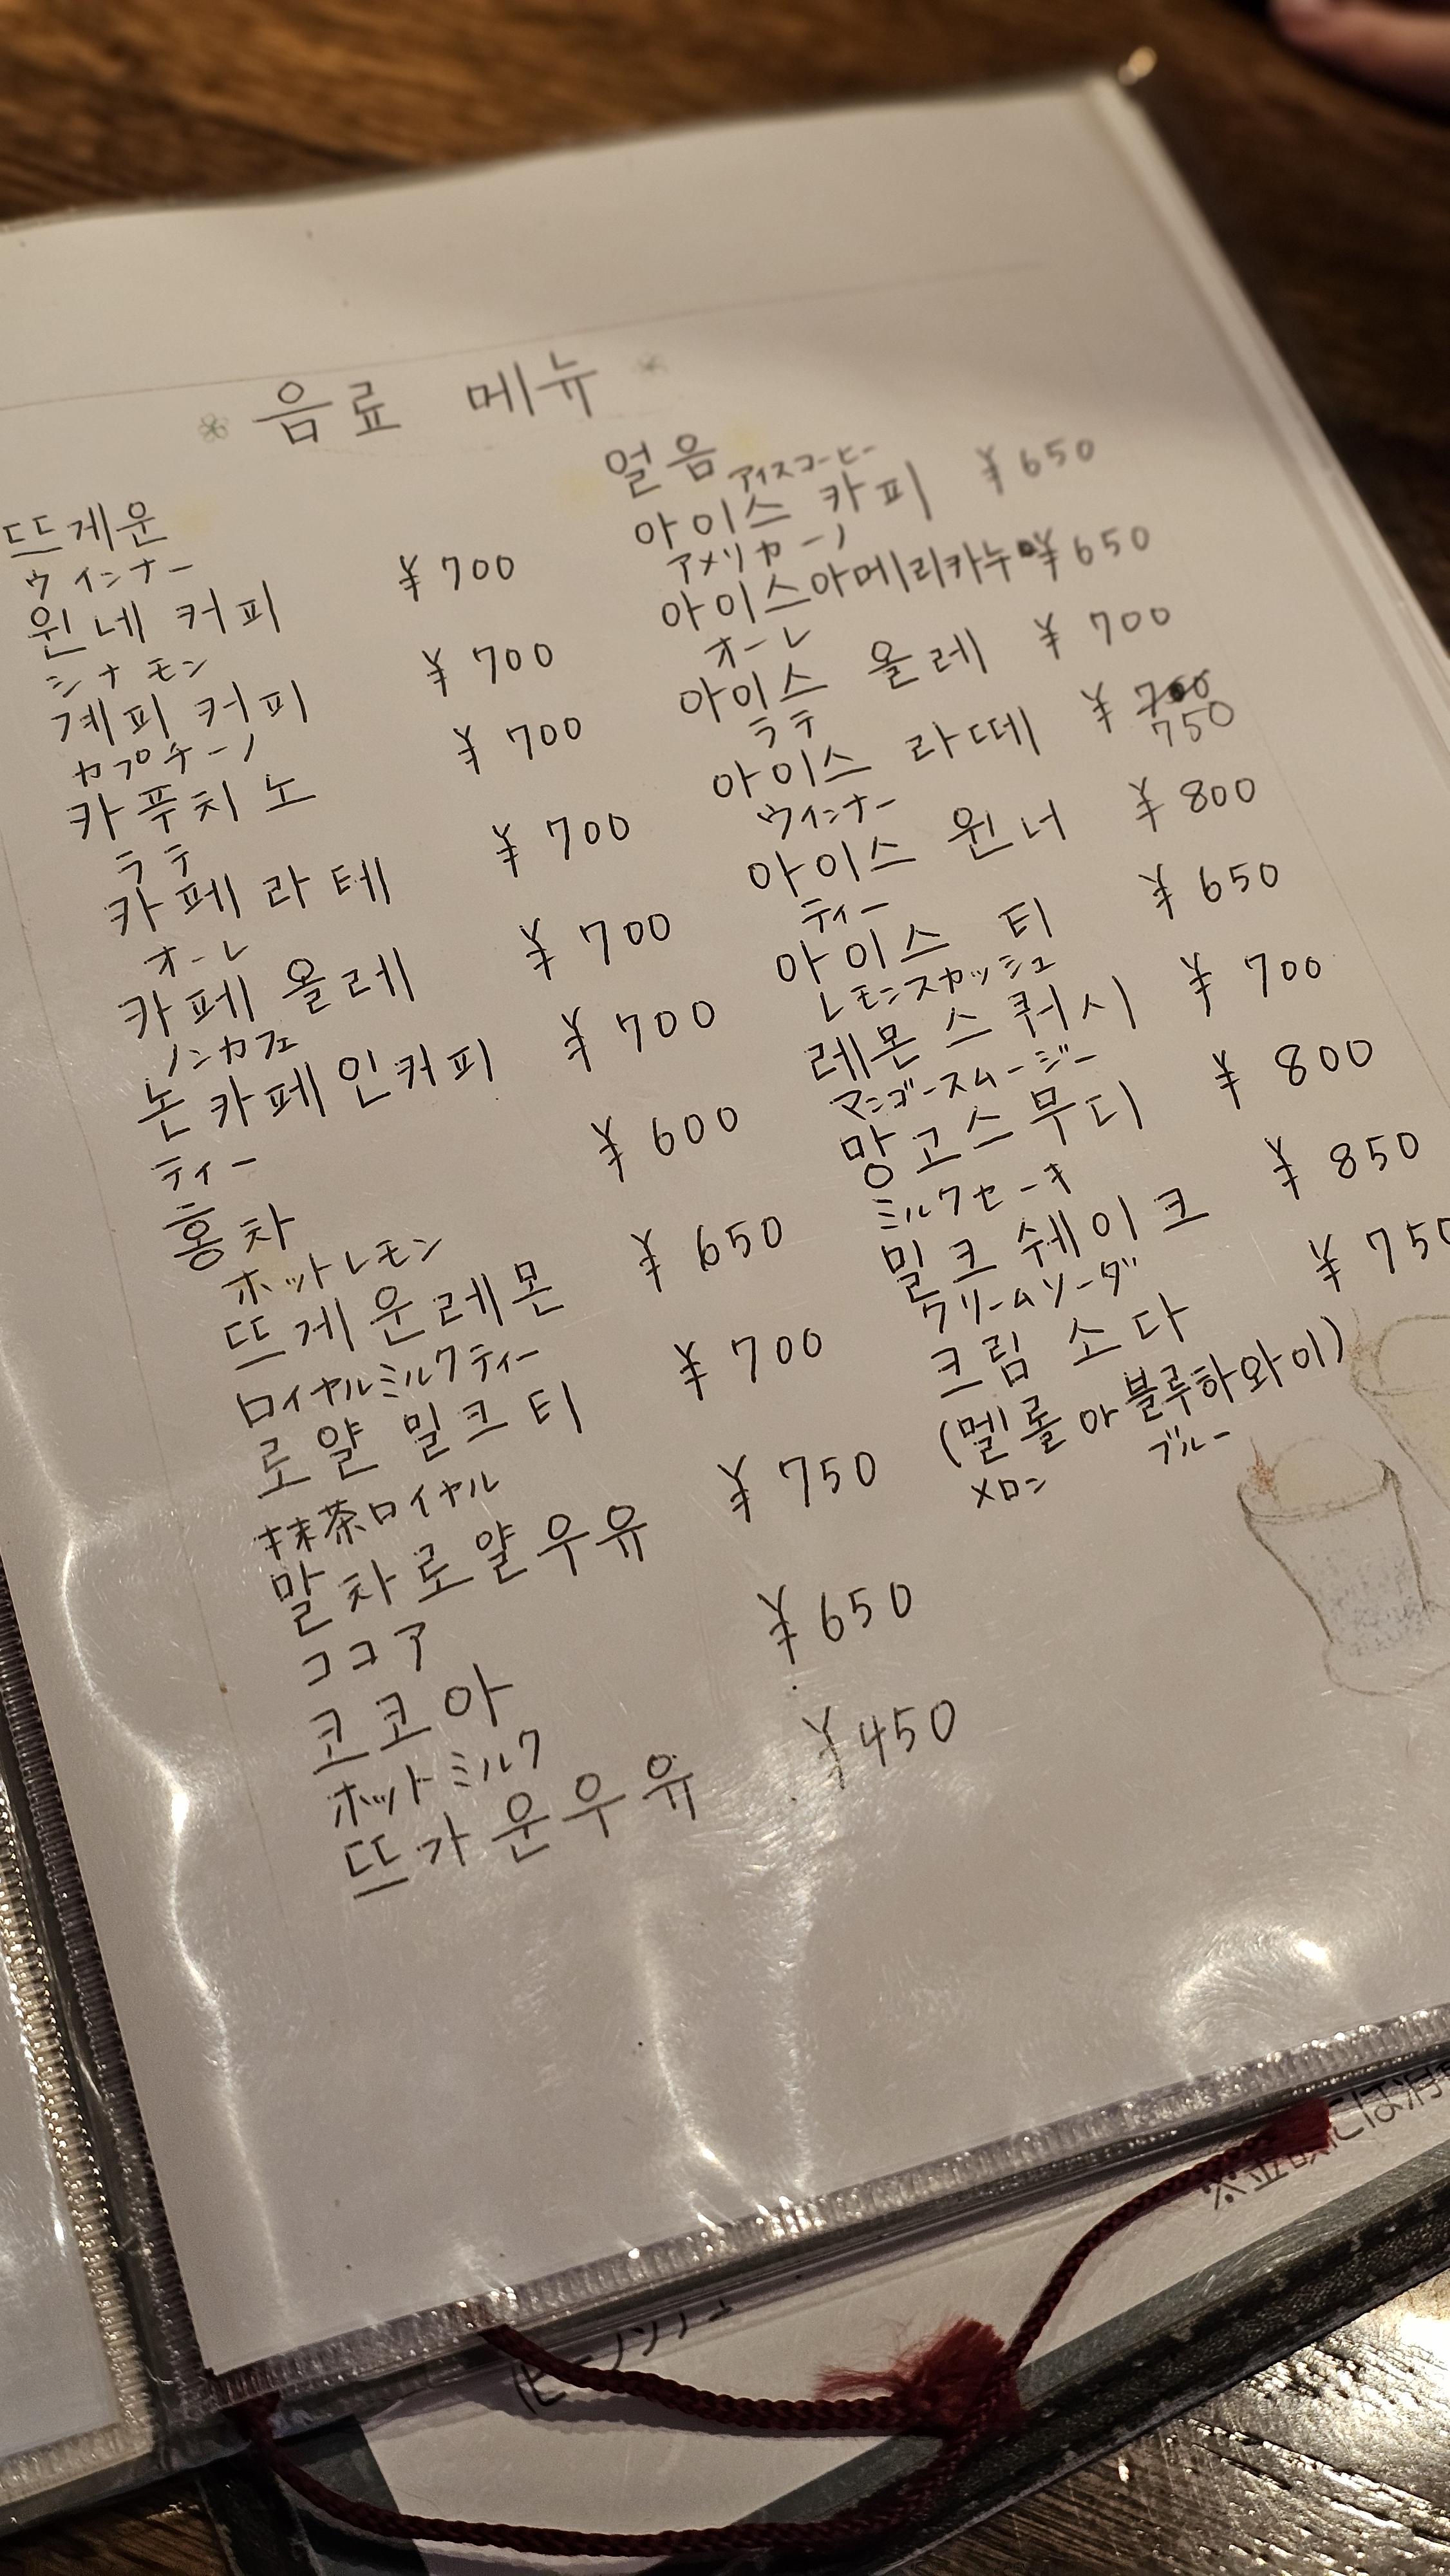 음료 메뉴
뜨게운
ウインナー
윈네 커피 ¥700
シナモン
계피 커피 ¥700
カプチーノ
카푸치노 ¥700
ラテ
카페 라테 ¥700
オーレ
카페 올레 ¥700
ノンカフェ
논카페인커피 ¥700
ティー
홍차 ¥600
ホットレモン
뜨게운레몬 ¥650
ロイヤルミルクティー
로얄 밀크티 ¥700
抹茶ロイヤル
말차로얄우유 ¥750
ココア
코코아 ¥650
ホットミルク
뜨가운우유 ¥450
얼음
アイスコーヒー
아이스 카피 ¥650
アメリカーノ
아이스아메리카누 ¥650
オーレ
아이스 올레 ¥700
ラテ
아이스 라떼 ¥700
750
ウインナー
아이스 윈너 ¥800
ティー
아이스 티 ¥650
レモンスカッシュ
레몬스쿼시 ¥700
マンゴースムージー
망고스무디 ¥800
ミルクセーキ
밀크 쉐이크 ¥850
クリームソーダ
크림 소다 ¥750
(멜롤 아 블루하와이)
メロン ブルー